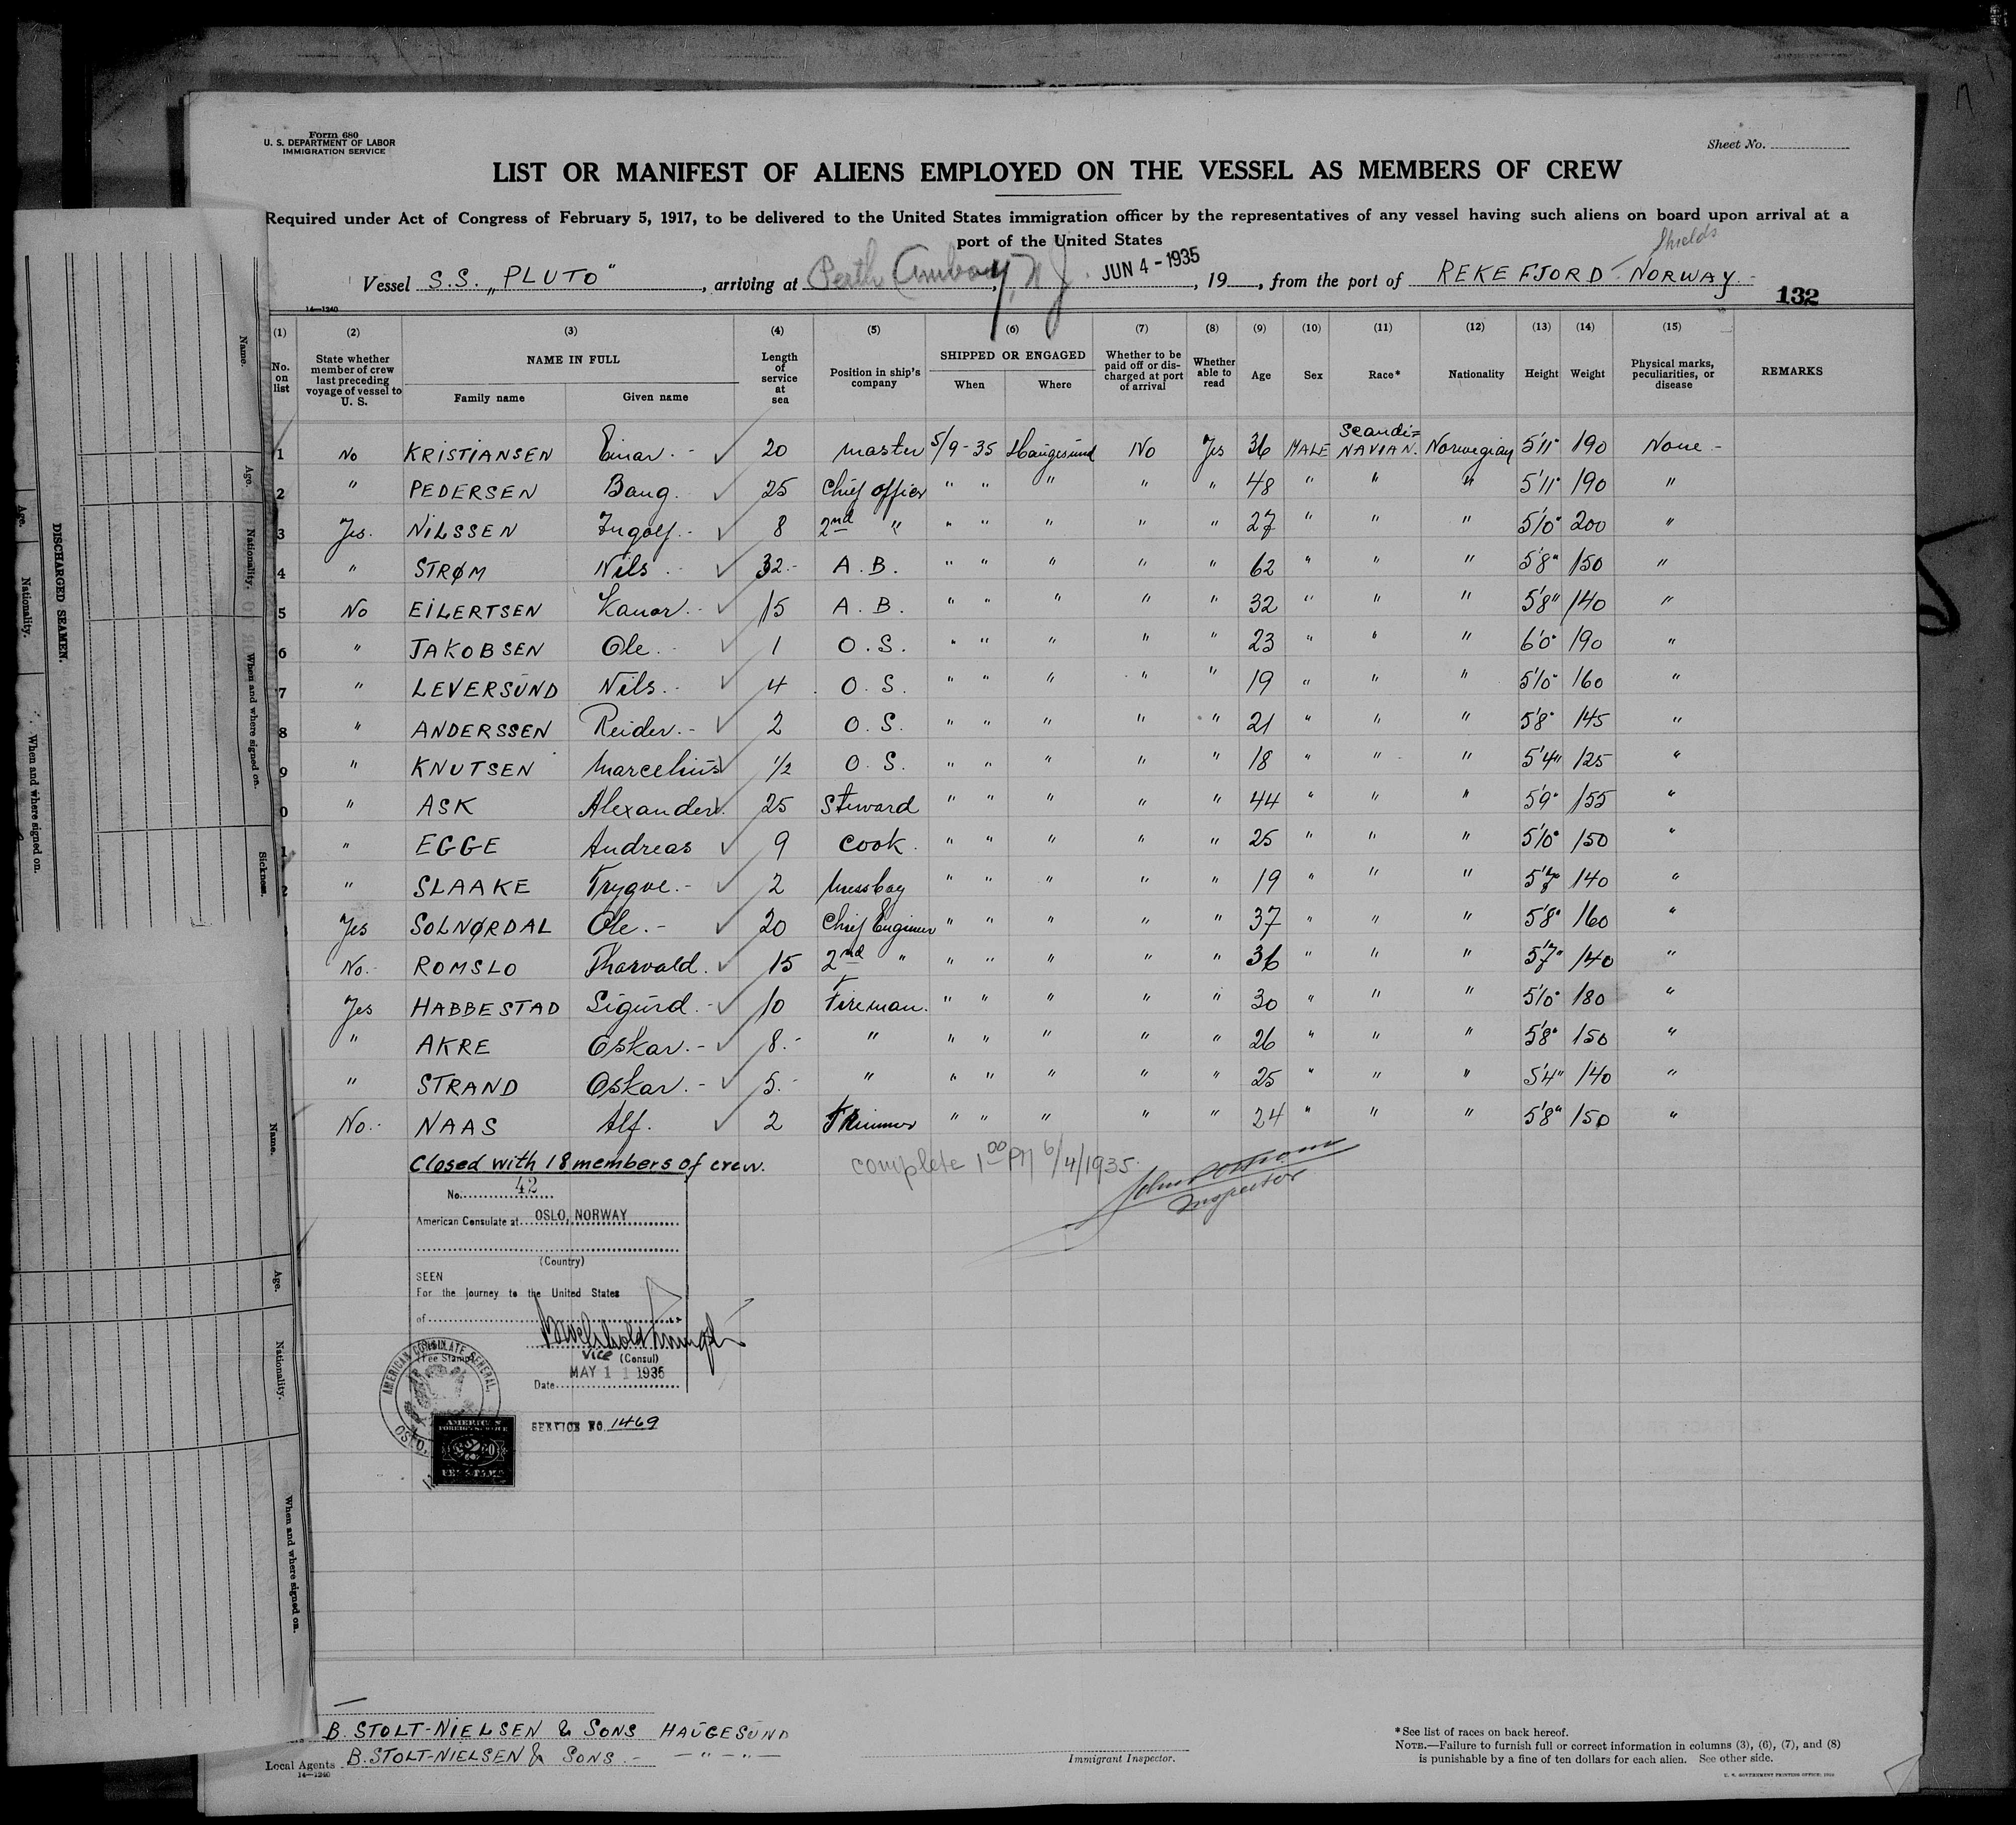 Form 680
U. S. DEPARTMENT OF LABOR
IMMIGRATION SERVICE
Sheet No.
LIST OR MANIFEST OF ALIENS EMPLOYED ON THE VESSEL AS MEMBERS OF CREW
Required under Act of Congress of February 5, 1917, to be delivered to the United States immigration officer by the representatives of any vessel having such aliens on board upon arrival at a
port of the United States
Shields
Vessel S.S. „PLUTO", arriving at Perth Amboy, N J. JUN 4 - 1935, 19, from the port of REKEFJORD - NORWAY.-
132
14—1240
(1) (2) (3) (4) (5) (6) (7) (8) (9) (10) (11) (12) (13) (14) (15)
No. on list | State whether member of crew last preceding voyage of vessel to U. S. | NAME IN FULL | Family name | Given name | Length of service at sea | Position in ship's company | SHIPPED OR ENGAGED | When | Where | Whether to be paid off or discharged at port of arrival | Whether able to read | Age | Sex | Race* | Nationality | Height | Weight | Physical marks, peculiarities, or disease | REMARKS
1 No KRISTIANSEN Einar.- ✓ 20 master 5/9-35 Haugesund No Yes 36 MALE Scandi=NAVIAN. Norwegian 5'11" 190 None -
2 " PEDERSEN Baug. ✓ 25 Chief officer " " " " " 48 " " " 5'11" 190 "
3 Yes. NILSSEN Ingolf.- ✓ 8 2nd " " " " " " 27 " " " 5'10" 200 "
4 " STRØM Nils.- ✓ 32.- A.B. " " " " " 62 " " " 5'8" 150 "
5 No EILERTSEN ✓ 15 A.B. " " " " " 32 " " " 5'8" 140 "
6 " JAKOBSEN Ole.- ✓ 1 O.S. " " " " " 23 " " " 6'0" 190 "
7 " LEVERSUND Nils.- ✓ 4 O.S. " " " " " 19 " " " 5'10" 160 "
8 " ANDERSSEN Reider.- ✓ 2 O.S. " " " " " 21 " " " 5'8" 145 "
9 " KNUTSEN Marcelius ✓ 1/2 O.S. " " " " " 18 " " " 5'4" 125 "
0 " ASK Alexander ✓ 25 Steward " " " " " 44 " " " 5'9" 155 "
1 " EGGE Andreas ✓ 9 Cook. " " " " " 25 " " " 5'10" 150 "
2 " SLAAKE Trygve.- ✓ 2 Messboy " " " " " 19 " " " 5'7" 140 "
Yes SOLNØRDAL Ole.- ✓ 20 Chief Engineer " " " " " 37 " " " 5'8" 160 "
No.- ROMSLO Tharvald. ✓ 15 2nd " " " " " " 36 " " " 5'7" 140 "
Yes HABBESTAD Sigurd.- ✓ 10 Fireman. " " " " " 30 " " " 5'10" 180 "
" AKRE Oskar.- ✓ 8.- " " " " " " 26 " " " 5'8" 150 "
" STRAND Oskar.- ✓ 5.- " " " " " " 25 " " " 5'4" 140 "
No.- NAAS Alf. ✓ 2 Trimmer " " " " " 24 " " " 5'8" 150 "
Closed with 18 members of crew.
complete 1 00 PM 6/4/1935.
Inspector
No. 42
American Consulate at OSLO, NORWAY
(Country)
SEEN
For the journey to the United States
of
Vice (Consul)
Date MAY 11 1935
(Fee Stamp)
AMERICAN CONSULATE GENERAL,
OSLO,
AMERICAN
FOREIGN SERVICE
FEE STAMP
SERVICE NO. 1469
B. STOLT-NIELSEN & SONS HAUGESUND
Local Agents B. STOLT-NIELSEN & SONS.- — " — " —
14—1240
Immigrant Inspector.
*See list of races on back hereof.
NOTE.—Failure to furnish full or correct information in columns (3), (6), (7), and (8)
is punishable by a fine of ten dollars for each alien. See other side.
U. S. GOVERNMENT PRINTING OFFICE:
DISCHARGED SEAMEN.
Name.
Age.
Nationality.
When and where signed on.
Sickness.
Age.
Nationality.
When and where signed on.
Name.
Age.
Nationality.
When and where signed on.